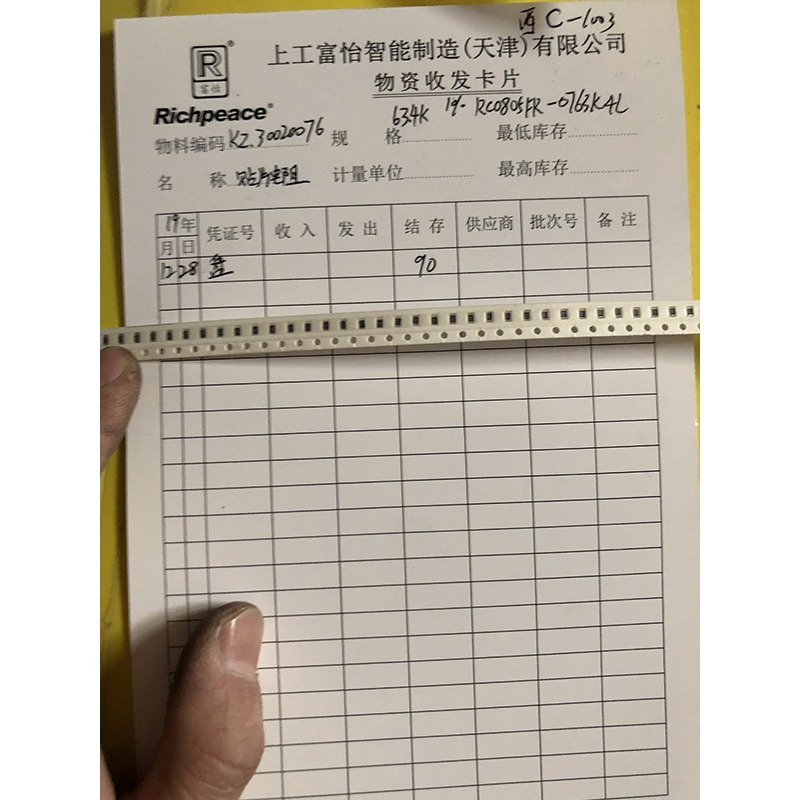 西C-1003
上工富怡智能制造(天津)有限公司
R®
富怡
Richpeace®
物资收发卡片
634K 1% RC0805FR-0763K4L
物料编码KZ.30020076 规 格 最低库存
名 称 贴片电阻 计量单位 最高库存
19年 凭证号 收入 发出 结存 供应商 批次号 备注
月 日
12 28 盘 90